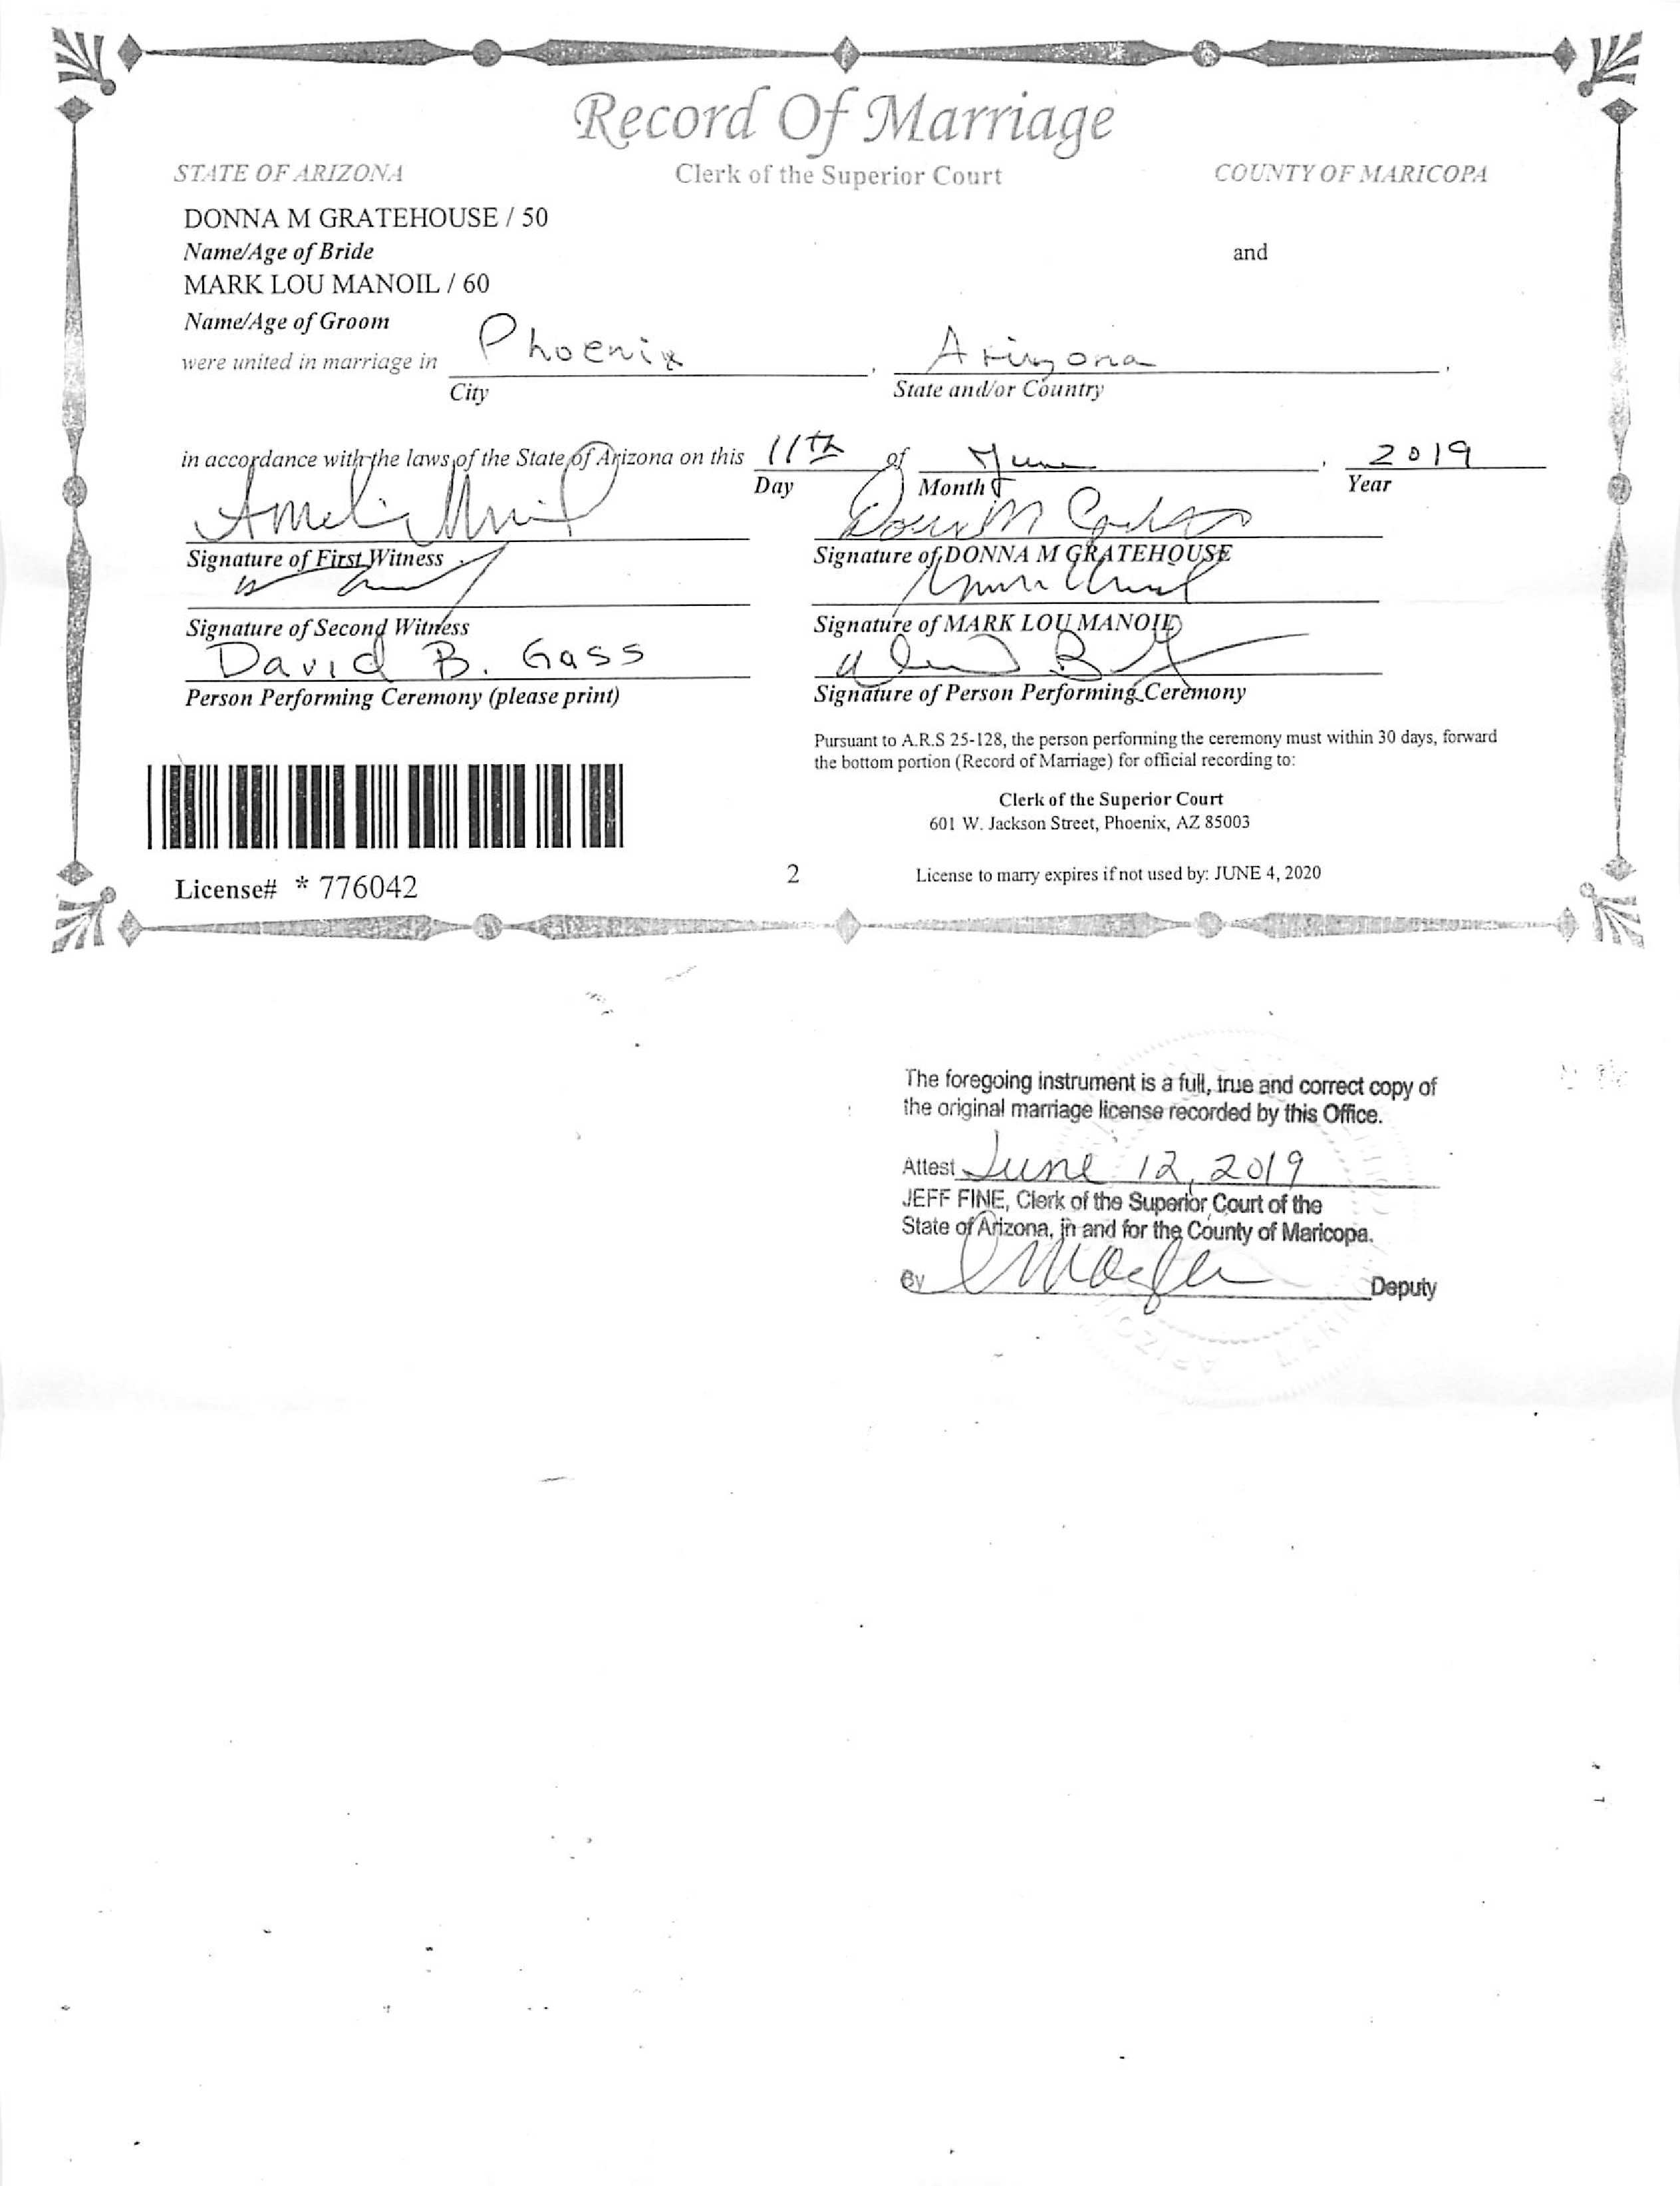 Record Of Marriage
STATE OF ARIZONA Clerk of the Superior Court COUNTY OF MARICOPA
DONNA M GRATEHOUSE / 50
Name/Age of Bride and
MARK LOU MANOIL / 60
Name/Age of Groom
were united in marriage in Phoenix, Arizona,
City State and/or Country
in accordance with the laws of the State of Arizona on this 11th of June, 2019
Day Month Year
Signature of First Witness Signature of DONNA M GRATEHOUSE
Signature of Second Witness Signature of MARK LOU MANOIL
David B. Gass
Person Performing Ceremony (please print) Signature of Person Performing Ceremony
Pursuant to A.R.S 25-128, the person performing the ceremony must within 30 days, forward
the bottom portion (Record of Marriage) for official recording to:
Clerk of the Superior Court
601 W. Jackson Street, Phoenix, AZ 85003
License# * 776042 2 License to marry expires if not used by: JUNE 4, 2020
The foregoing instrument is a full, true and correct copy of
the original marriage license recorded by this Office.
Attest June 12, 2019
JEFF FINE, Clerk of the Superior Court of the
State of Arizona, in and for the County of Maricopa.
By Deputy